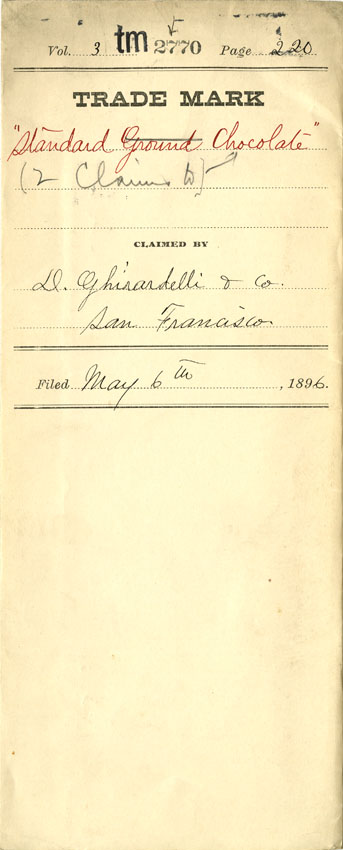 Vol. 3 tm 2770 Page 220
TRADE MARK
"Standard Ground Chocolate"
(2 Claims to)
CLAIMED BY
D. Ghirardelli & Co.
San Francisco
Filed May 6th, 1896.